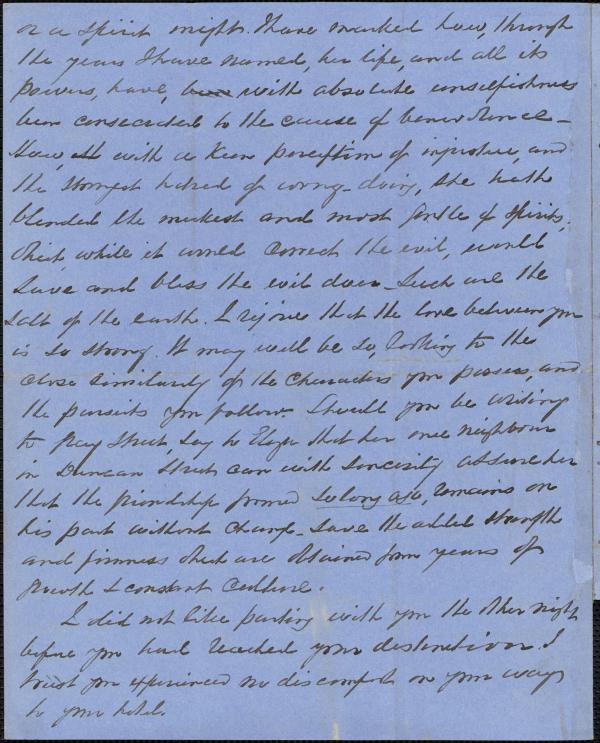 or a spirit might. I have marked how, through
the years I have named, her life, and all its
powers, have, been with absolute unselfishness
been consecrated to the cause of benevolence –
How, with a keen perception of injustice, and
the strongest hatred of wrong-doing, she hath
blended the meekest and most gentle of spirits,
that, while it would correct the evil, would
save and bless the evil doer – Such are the
salt of the earth. I rejoice that the love between you
is so strong. It may well be so, looking to the
close similarity of the characters you possess, and
the pursuits you follow. Should you be writing
to Street, say to Eliza that her one neighbour
in Duncan Street can with sincerity assure her
that the friendship formed so long ago, remains on
his part without change – save the added strength
and firmness that are obtained from years of
growth & constant culture.
I did not like parting with you the other night
before you had reached your destination. I
trust you experienced no discomfort on your way
to your hotel.